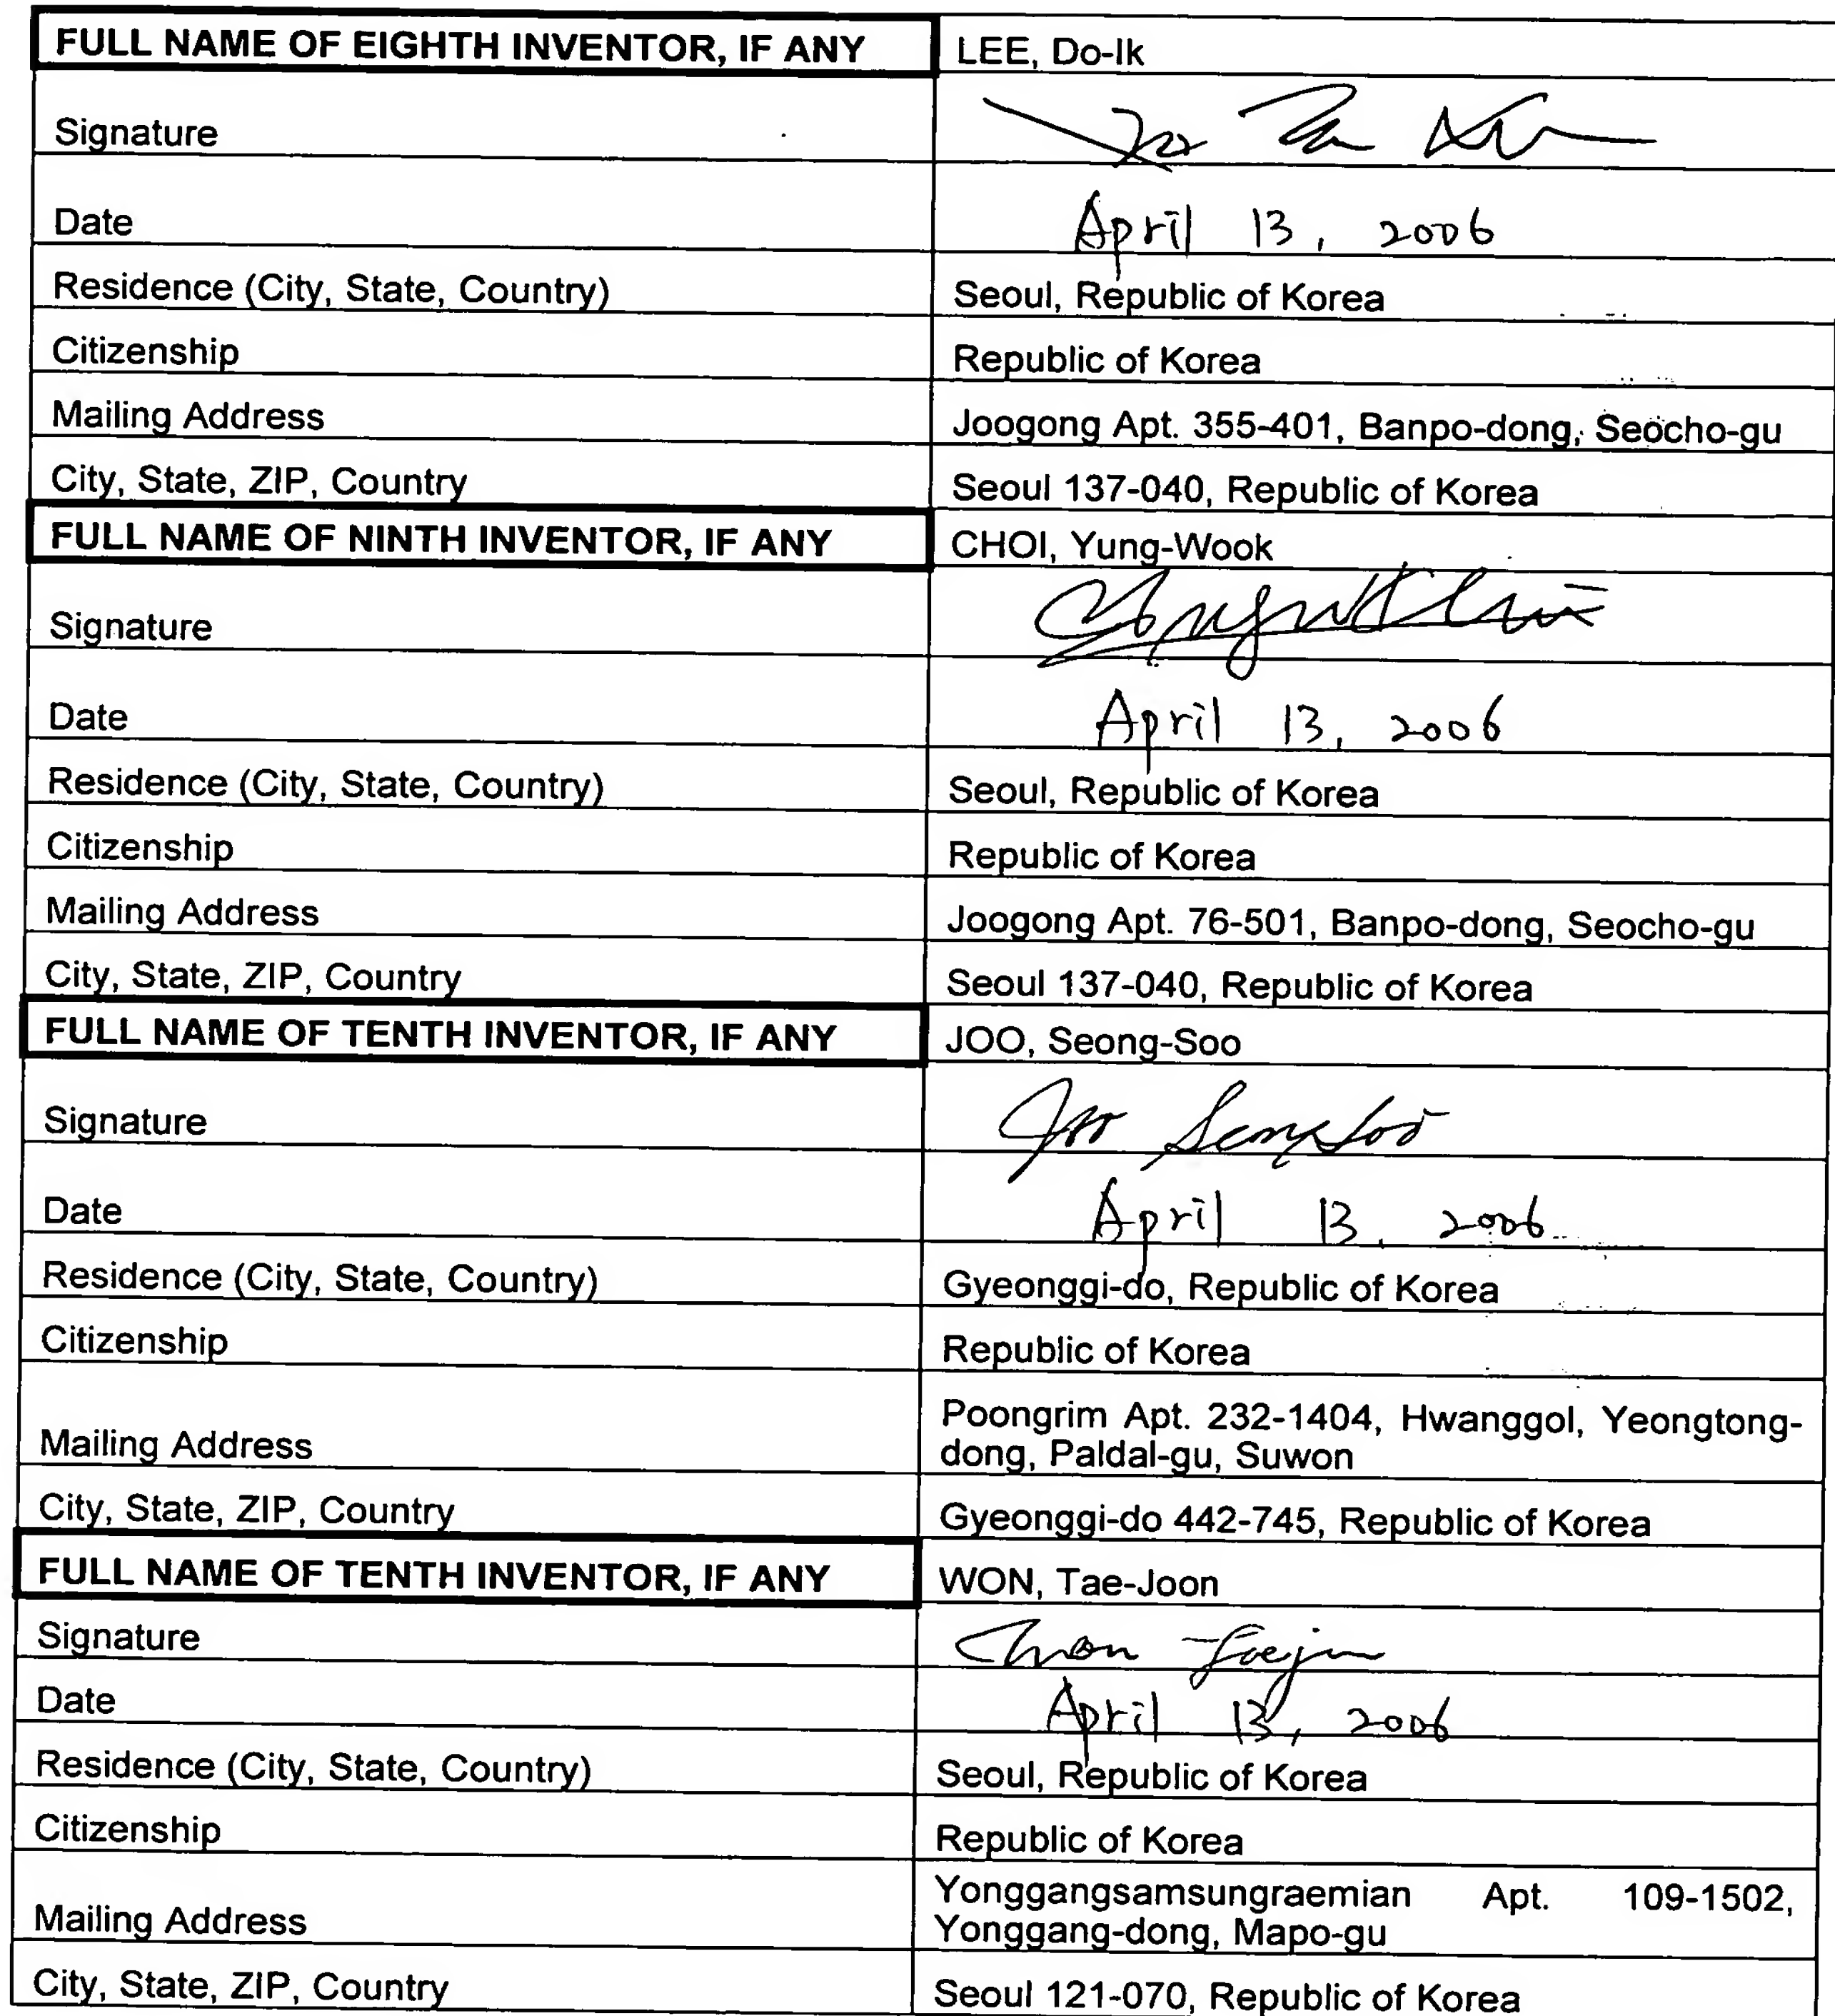 FULL NAME OF EIGHTH INVENTOR, IF ANY LEE, Do-Ik
Signature
Date April 13, 2006
Residence (City, State, Country) Seoul, Republic of Korea
Citizenship Republic of Korea
Mailing Address Joogong Apt. 355-401, Banpo-dong, Seocho-gu
City, State, ZIP, Country Seoul 137-040, Republic of Korea
FULL NAME OF NINTH INVENTOR, IF ANY CHOI, Yung-Wook
Signature
Date April 13, 2006
Residence (City, State, Country) Seoul, Republic of Korea
Citizenship Republic of Korea
Mailing Address Joogong Apt. 76-501, Banpo-dong, Seocho-gu
City, State, ZIP, Country Seoul 137-040, Republic of Korea
FULL NAME OF TENTH INVENTOR, IF ANY JOO, Seong-Soo
Signature Joo
Date April 13, 2006
Residence (City, State, Country) Gyeonggi-do, Republic of Korea
Citizenship Republic of Korea
Mailing Address Poongrim Apt. 232-1404, Hwanggol, Yeongtong-
dong, Paldal-gu, Suwon
City, State, ZIP, Country Gyeonggi-do 442-745, Republic of Korea
FULL NAME OF TENTH INVENTOR, IF ANY WON, Tae-Joon
Signature
Date April 13, 2006
Residence (City, State, Country) Seoul, Republic of Korea
Citizenship Republic of Korea
Mailing Address Yonggangsamsungraemian Apt. 109-1502,
Yonggang-dong, Mapo-gu
City, State, ZIP, Country Seoul 121-070, Republic of Korea